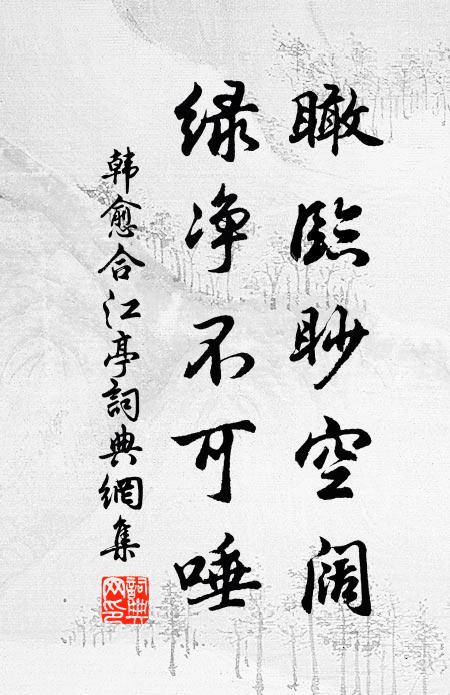 瞰臨眇空闊
绿净不可唾
韩愈合江亭詞典網集
詞典網印